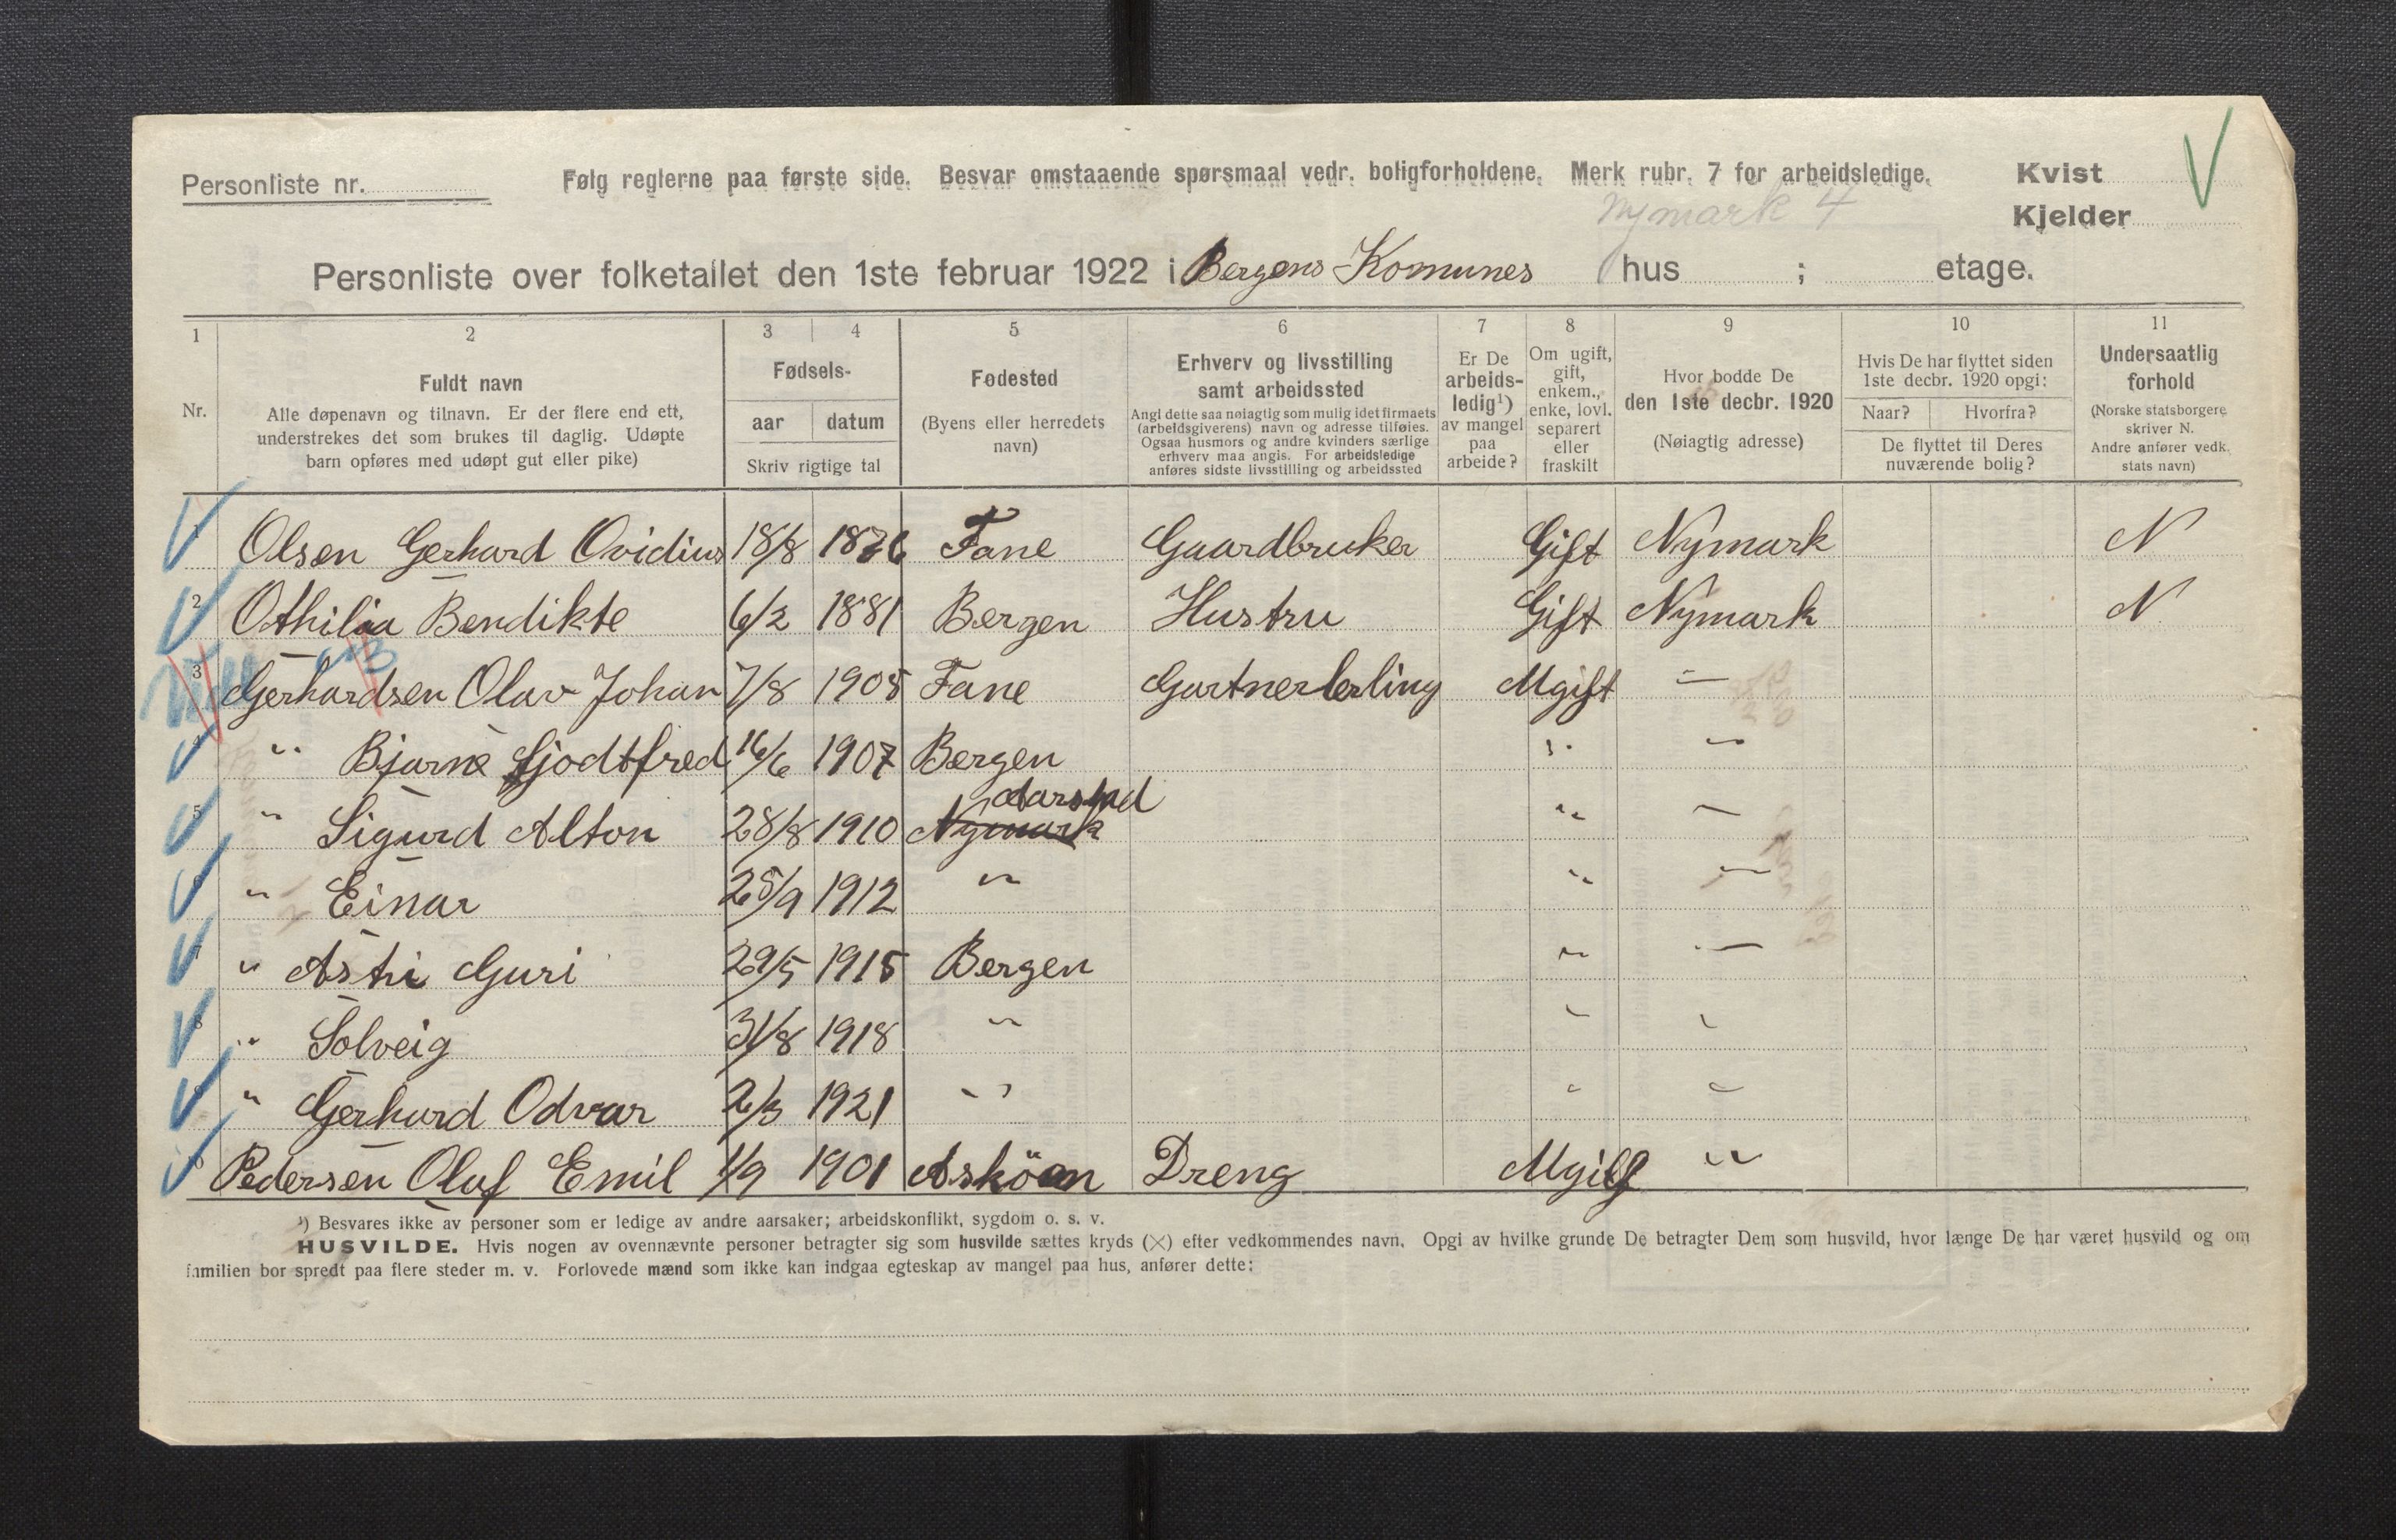 Personliste nr.
Følg reglerne paa første side. Besvar omstaaende spørsmaal vedr. boligforholdene. Merk rubr. 7 for arbeidsledige.
Kvist
Nymark 4
Kjelder
Personliste over folketallet den 1ste februar 1922 i Bergens Komunes hus ; etage.
1 2 3 4 5 6 7 8 9 10 11
Nr.
Fuldt navn
Alle døpenavn og tilnavn. Er der flere end ett,
understrekes det som brukes til daglig. Udøpte
barn opføres med udøpt gut eller pike)
Fødsels-
aar datum
Skriv rigtige tal
Fødested
(Byens eller herredets
navn)
Erhverv og livsstilling
samt arbeidssted
Angi dette saa nøiagtig som mulig idet firmaets
(arbeidsgiverens) navn og adresse tilføies.
Ogsaa husmors og andre kvinders særlige
erhverv maa angis. For arbeidsledige
anføres sidste livsstilling og arbeidssted
Er De
arbeids-
ledig¹)
av mangel
paa
arbeide?
Om ugift,
gift,
enkem.,
enke, lovl.
separert
eller
fraskilt
Hvor bodde De
den 1ste decbr. 1920
(Nøiagtig adresse)
Hvis De har flyttet siden
1ste decbr. 1920 opgi:
Naar? Hvorfra?
De flyttet til Deres
nuværende bolig?
Undersaatlig
forhold
(Norske statsborgere
skriver N.
Andre anfører vedk.
stats navn)
1 Olsen Gerhard Ovidius 18/8 1876 Fane Gaardbruker Gift Nymark N
2 Othilia Bendikte 6/2 1881 Bergen Hustru Gift Nymark N
3 Gerhardsen Olav Johan 7/8 1905 Fane Gartnerlerling Ugift "
4 " Bjarne Gjodtfred 16/6 1907 Bergen " "
Aarstad
5 " Sigurd Alton 28/8 1910 Nymark " "
6 " Einar 25/9 1912 " " "
7 " Astri Guri 29/5 1915 Bergen " "
8 " Solveig 31/8 1918 " " "
9 " Gerhard Odvar 2/3 1921 " " "
Pedersen Oluf Emil 1/9 1901 Asköen Dreng Ugift "
¹) Besvares ikke av personer som er ledige av andre aarsaker; arbeidskonflikt, sygdom o. s. v.
HUSVILDE. Hvis nogen av ovennævnte personer betragter sig som husvilde sættes kryds (×) efter vedkommendes navn. Opgi av hvilke grunde De betragter Dem som husvild, hvor længe De har været husvild og om
familien bor spredt paa flere steder m. v. Forlovede mænd som ikke kan indgaa egteskap av mangel paa hus, anfører dette: